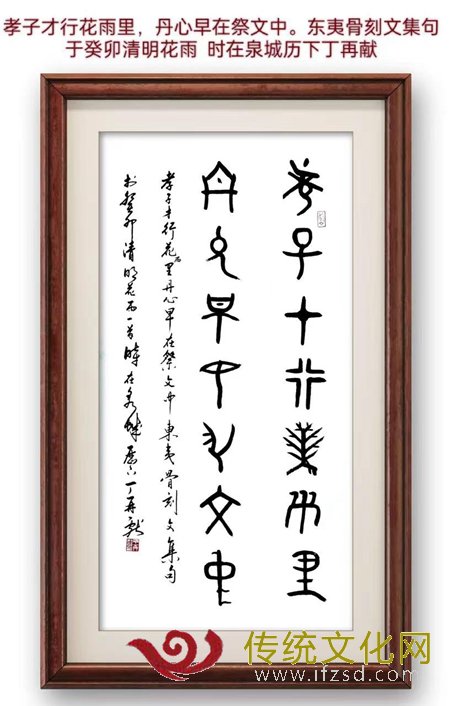 孝子才行花雨里，丹心早在祭文中。东夷骨刻文集句
于癸卯清明花雨 时在泉城历下丁再献
孝子才行花雨里
丹心早在祭文中
孝子才行花雨里丹心早在祭文中東夷骨刻文集句
於癸卯清明花雨一首時在泉城歷下丁再獻
传统文化网
www.ifzsd.com